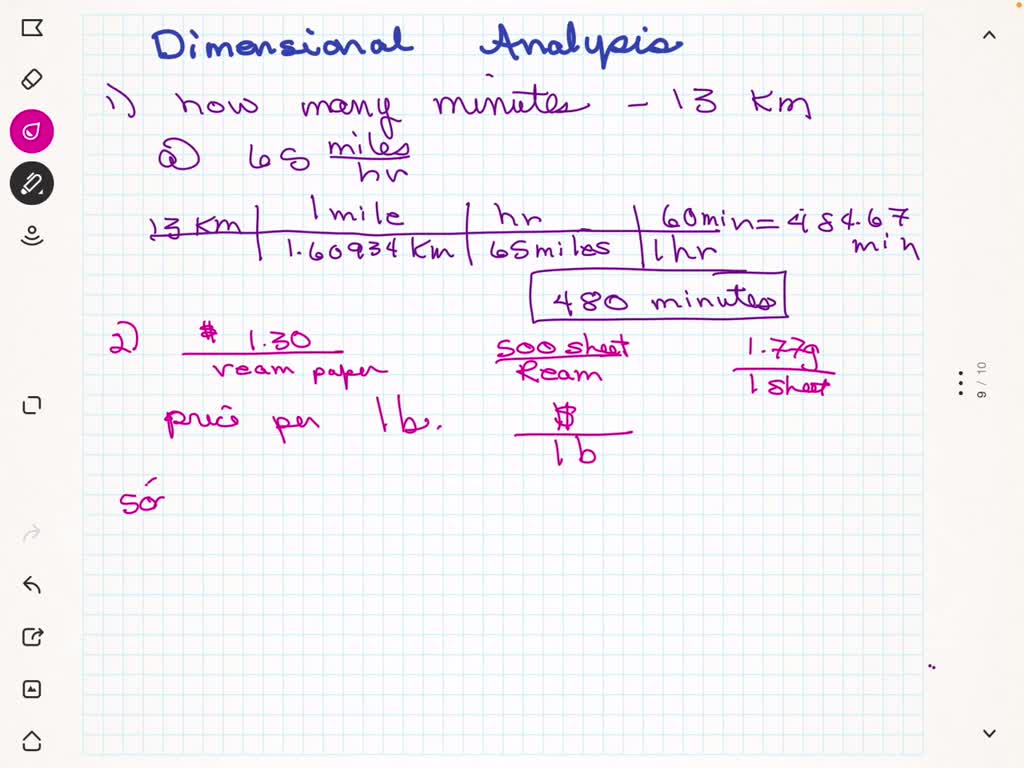 Dimensional Analysis
1) how many minutes - 13 Km
@ 65 miles/hr
13 Km | 1 mile / 1.60934 Km | hr / 65 miles | 60 min / 1 hr = 484.67 min
480 minutes
2) $ 1.30 / ream paper 500 sheet / Ream 1.77g / 1 sheet
price per lb. $ / lb
9 / 10